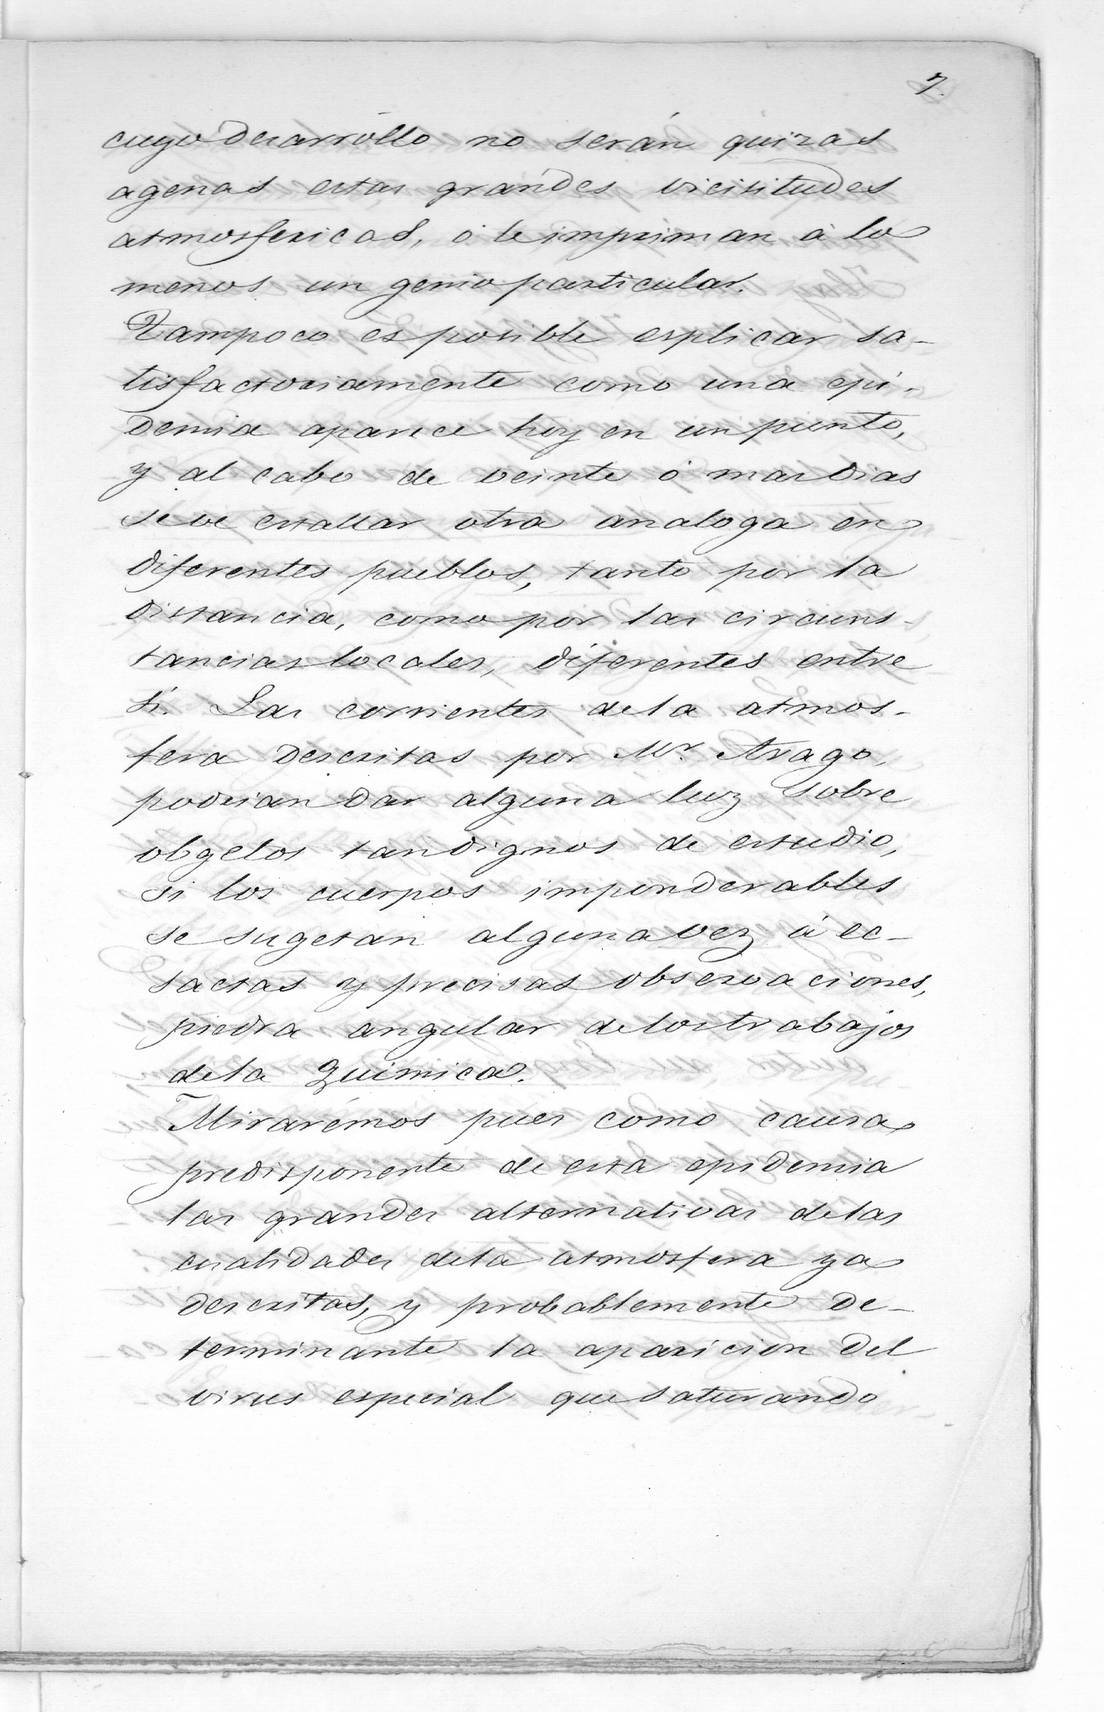 7.
cuyo desarrollo no serán quizas
agenas estas grandes vicisitudes
atmosfericas, ó le impriman á lo
menos un genio particular.
Tampoco es posible esplicar sa-
tisfactoriamente como una epi-
demia aparece hoy en un punto,
y al cabo de veinte ó mas dias
se ve estallar otra analoga en
diferentes pueblos, tanto por la
distancia, como por las circuns-
tancias locales, diferentes entre
sí. Las corrientes de la atmos-
fera descritas por Mr. Arago,
podrian dar alguna luz sobre
obgetos tan dignos de estudio,
si los cuerpos imponderables
se sugetan alguna vez á ec-
sactas y precisas observaciones,
piedra angular de los trabajos
de la Quimica.
Mirarémos pues como causa
predisponente de esta epidemia
las grandes alternativas de las
cualidades de la atmosfera ya
descritas, y probablemente de-
terminante la aparicion del
virus especial que saturando